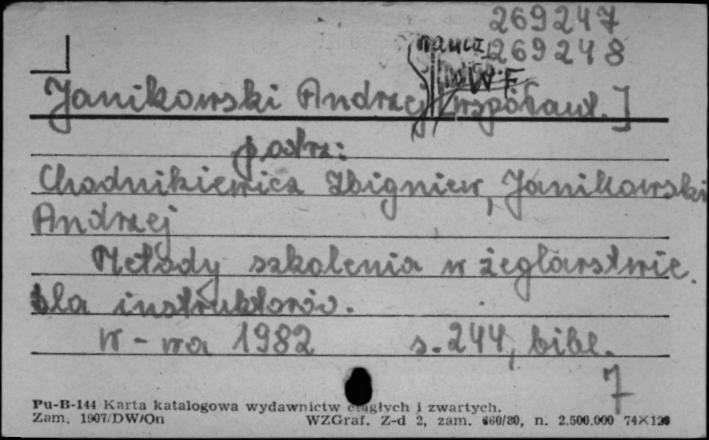 269247
269248
Janikowski Andrzej [współaut.]
patrz:
Chodnikiewicz Zbigniew, Janikowski
Andrzej
Metody szkolenia w żeglarstwie.
Dla instruktorów.
W-wa 1982 s. 244, bibl.
7
Pu-B-144 Karta katalogowa wydawnictw ciągłych i zwartych.
Zam. 1907/DW/On WZGraf. Z-d 2, zam. 660/80, n. 2.500.000 74×120